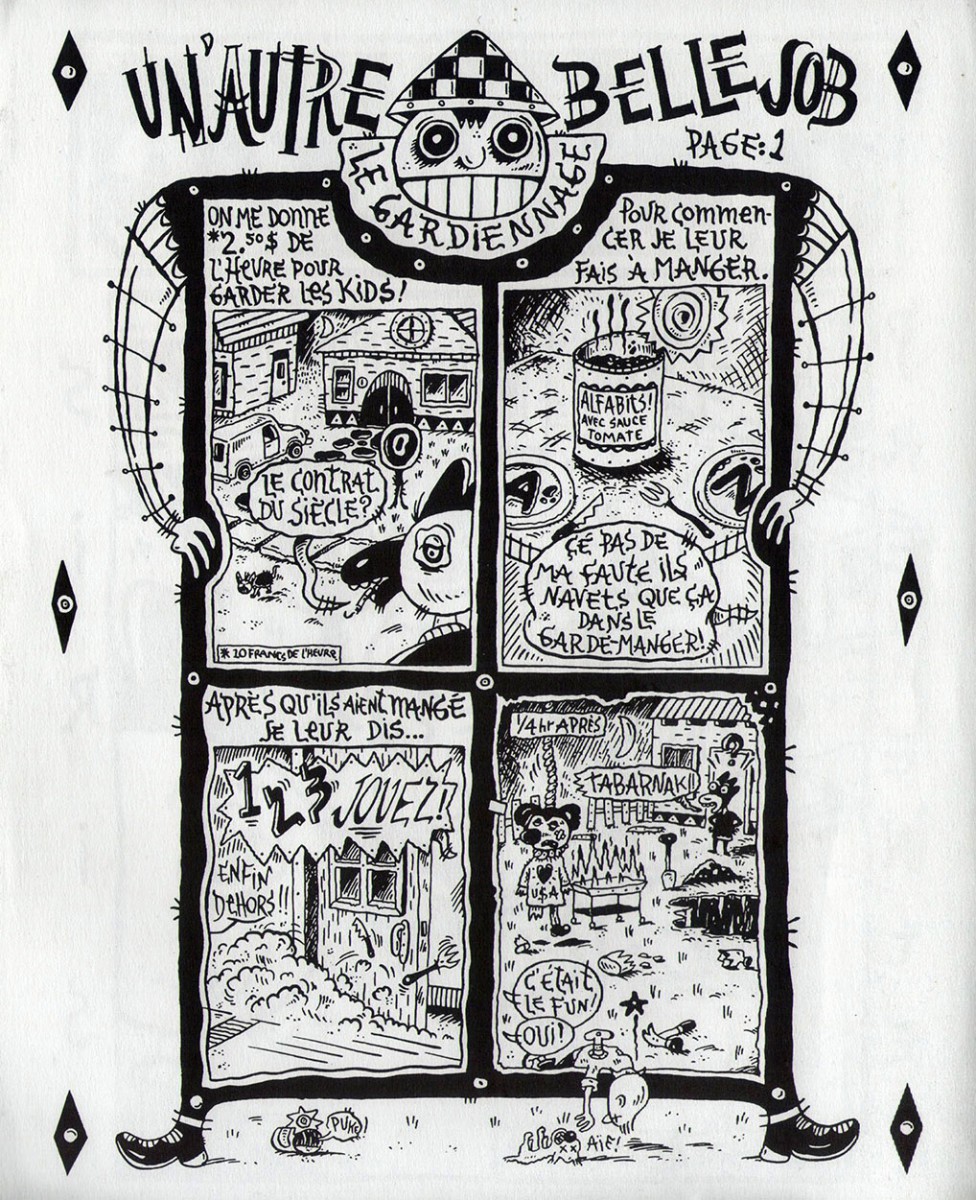 UN'AUTRE BELLE JOB
PAGE:1
LE GARDIENNAGE
ON ME DONNE
*2.50$ DE
L'HEURE POUR
GARDER LES KIDS!
LE CONTRAT
DU SIÈCLE?
* 10 FRANCS DE L'HEURE
POUR COMMEN-
CER JE LEUR
FAIS À MANGER.
ALFABITS!
AVEC SAUCE
TOMATE
A
N
ÇÉ PAS DE
MA FAUTE ILS
NAVETS QUE ÇA
DANS LE
GARDE-MANGER!
APRÈS QU'ILS AIENT MANGÉ
JE LEUR DIS...
1 2 3 JOUEZ!
ENFIN
DEHORS!!
1/4 hr APRÈS
?
TABARNAK!
USA
C'ÉTAIT
LE FUN!
OUI!
PUKE!
AÏE!